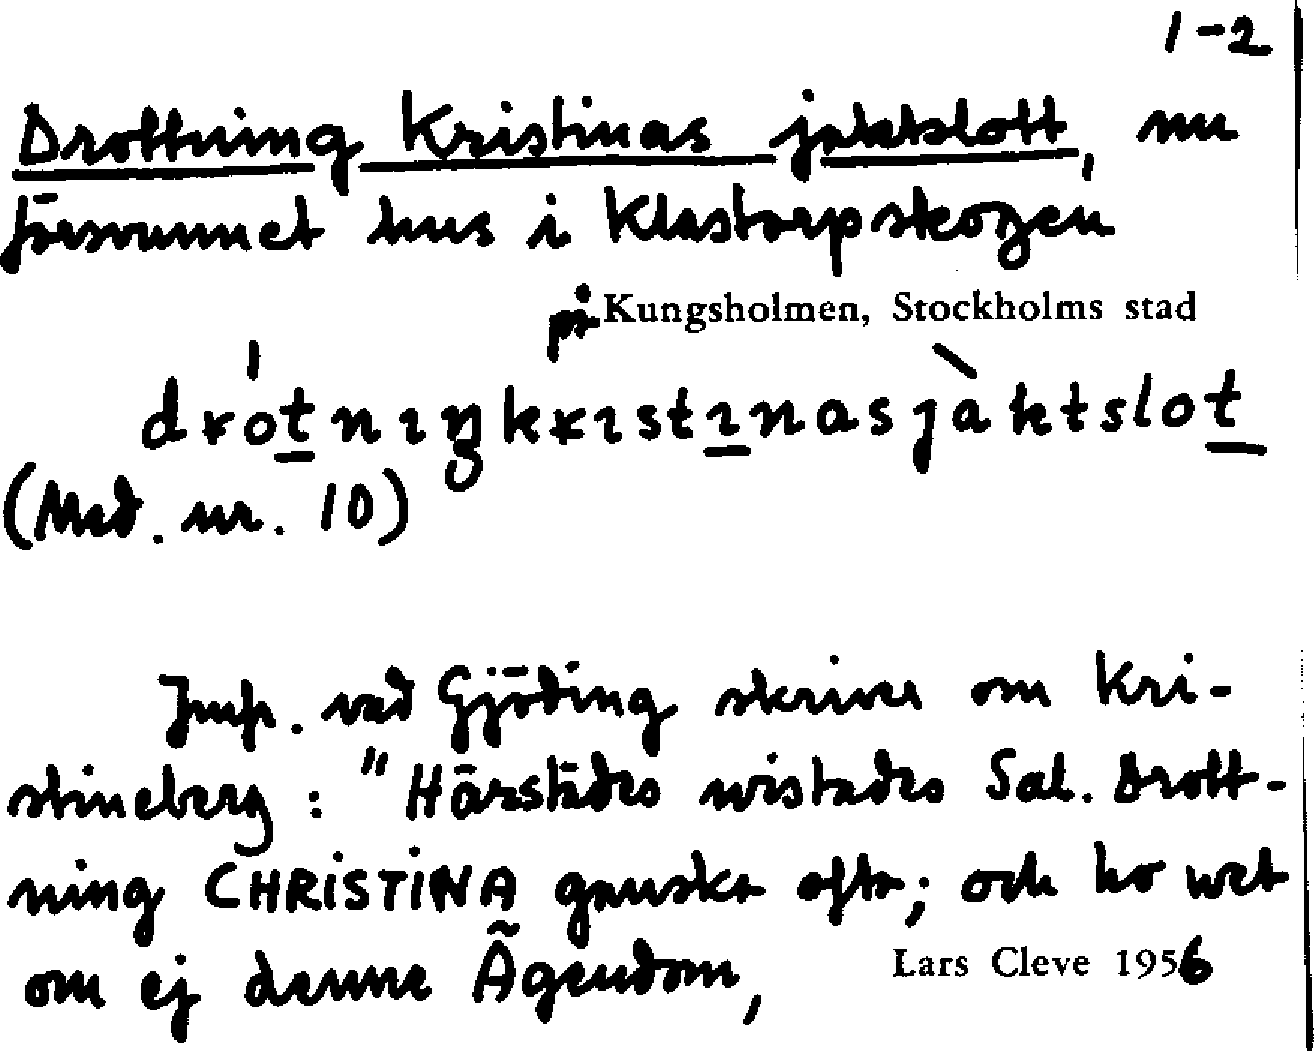 1-2
Drottning Kristinas jaktslott, nu
försvunnet hus i Klastorpskogen
på Kungsholmen, Stockholms stad
drótnıŋkrıstınasjàktslot
(Med. nr. 10)
Jmfr. vad Gjöding skriver om Kri-
stineberg: "Härstädes wistades Sal. Drott-
ning CHRISTINA ganska ofta; och ho wet
om ej denne Ägendom,
Lars Cleve 1956